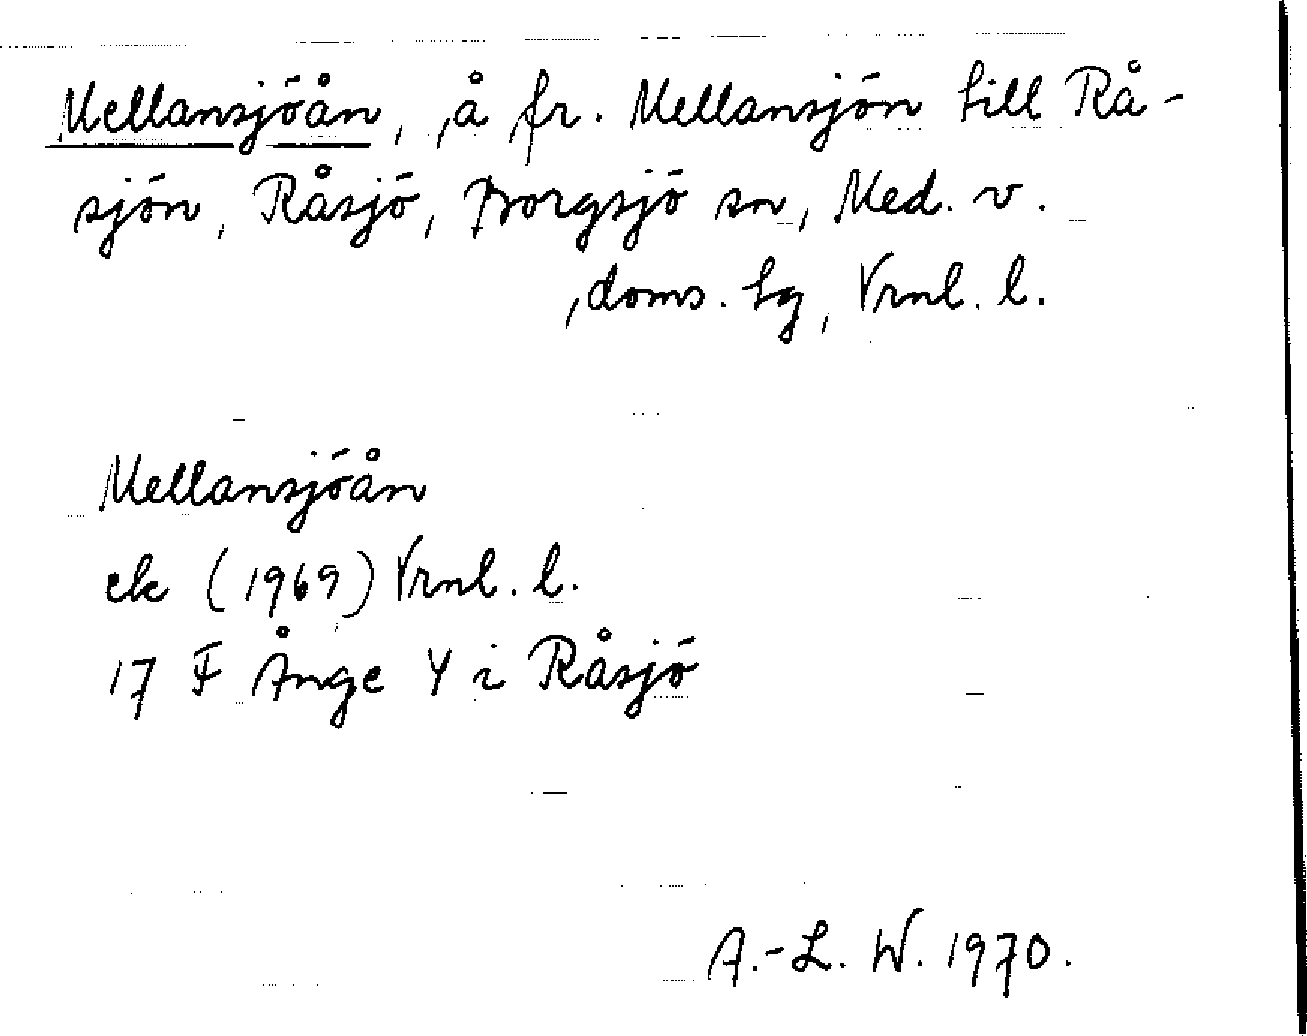 Mellansjöån, å fr. Mellansjön till Rå-
sjön, Råsjö, Borgsjö sn, Med. v.
doms. tg, Vrnl. l.
Mellansjöån
ek (1969) Vrnl. l.
17 F Ånge Y i Råsjö
A.-L. W. 1970.